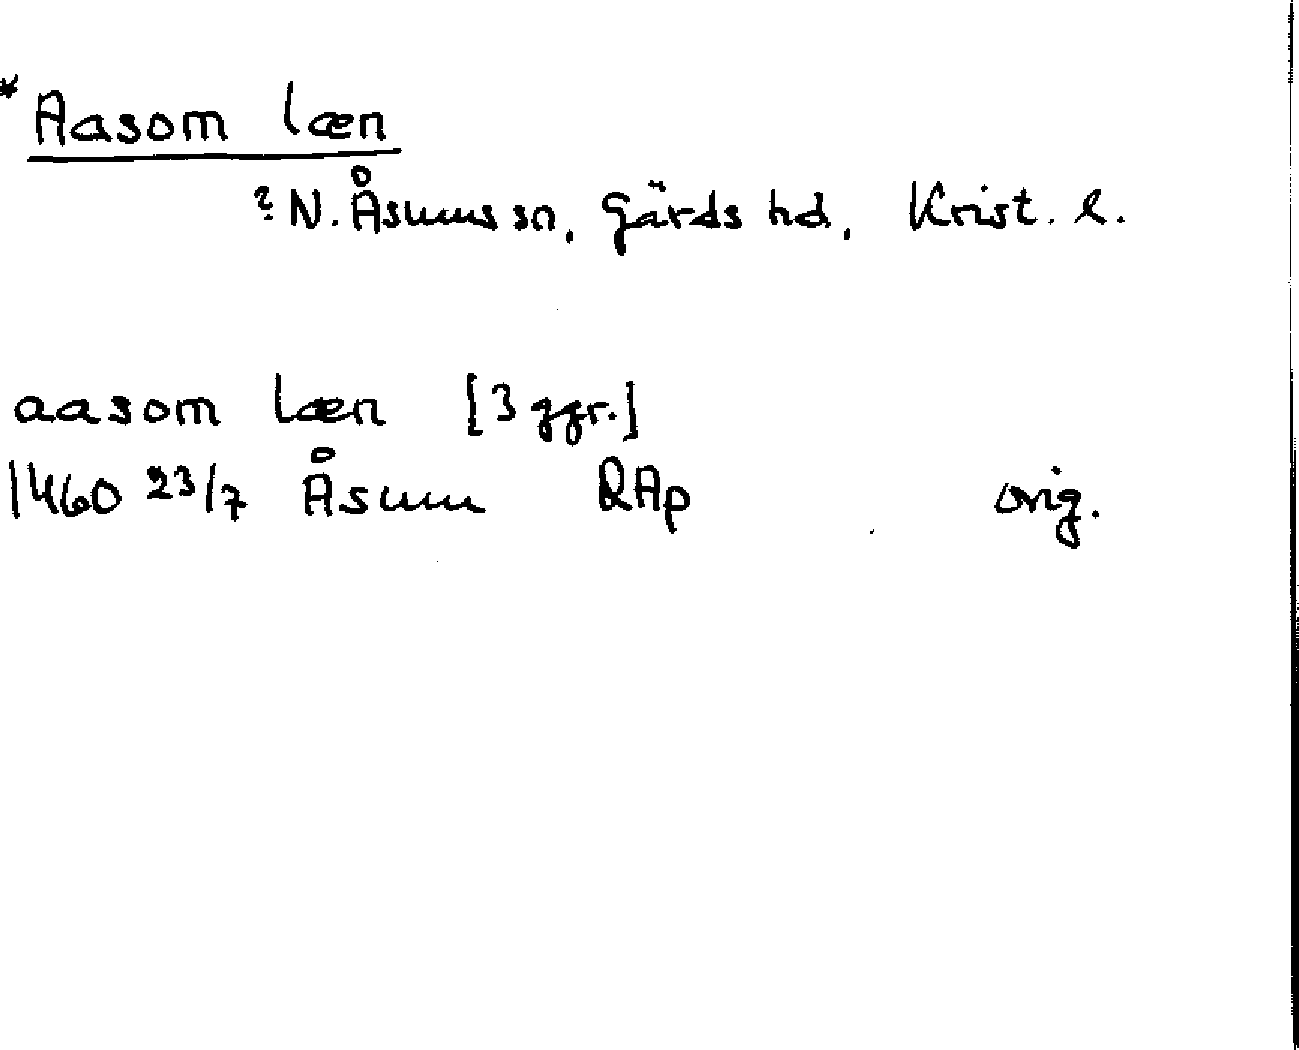 * Aasom læn
? N. Åsums sn, Gärds hd, Krist. l.
aasom læn [3 ggr.]
1460 23/7 Åsum RAp orig.